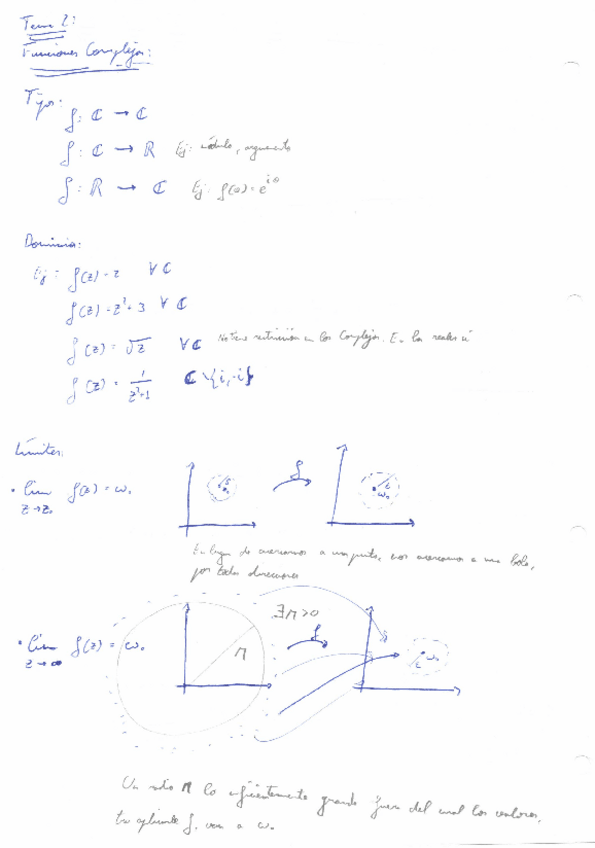 Tema 2:
Funciones Complejas:
Tipos:
f: ℂ → ℂ
f: ℂ → ℝ Ej: módulo, argumento
f: ℝ → ℂ Ej: f(θ) = e^{iθ}
Dominio:
Ej: f(z) = z ∀ ℂ
f(z) = z² + 3 ∀ ℂ
f(z) = √z ∀ ℂ No tiene restricción en los Complejos. En los reales sí
f(z) = 1/(z²+1) ℂ \ {i, -i}
Límites:
• lim f(z) = ω₀
z→z₀
f
δ
z₀
ε
ω₀
En lugar de acercarnos a un punto, nos acercamos a una bola,
por todas direcciones
∃ r > 0
• lim f(z) = ω₀
z→∞
r
f
ω₀
ε
Un radio r lo suficientemente grande fuera del cual los valores,
tras aplicarle f, van a ω₀